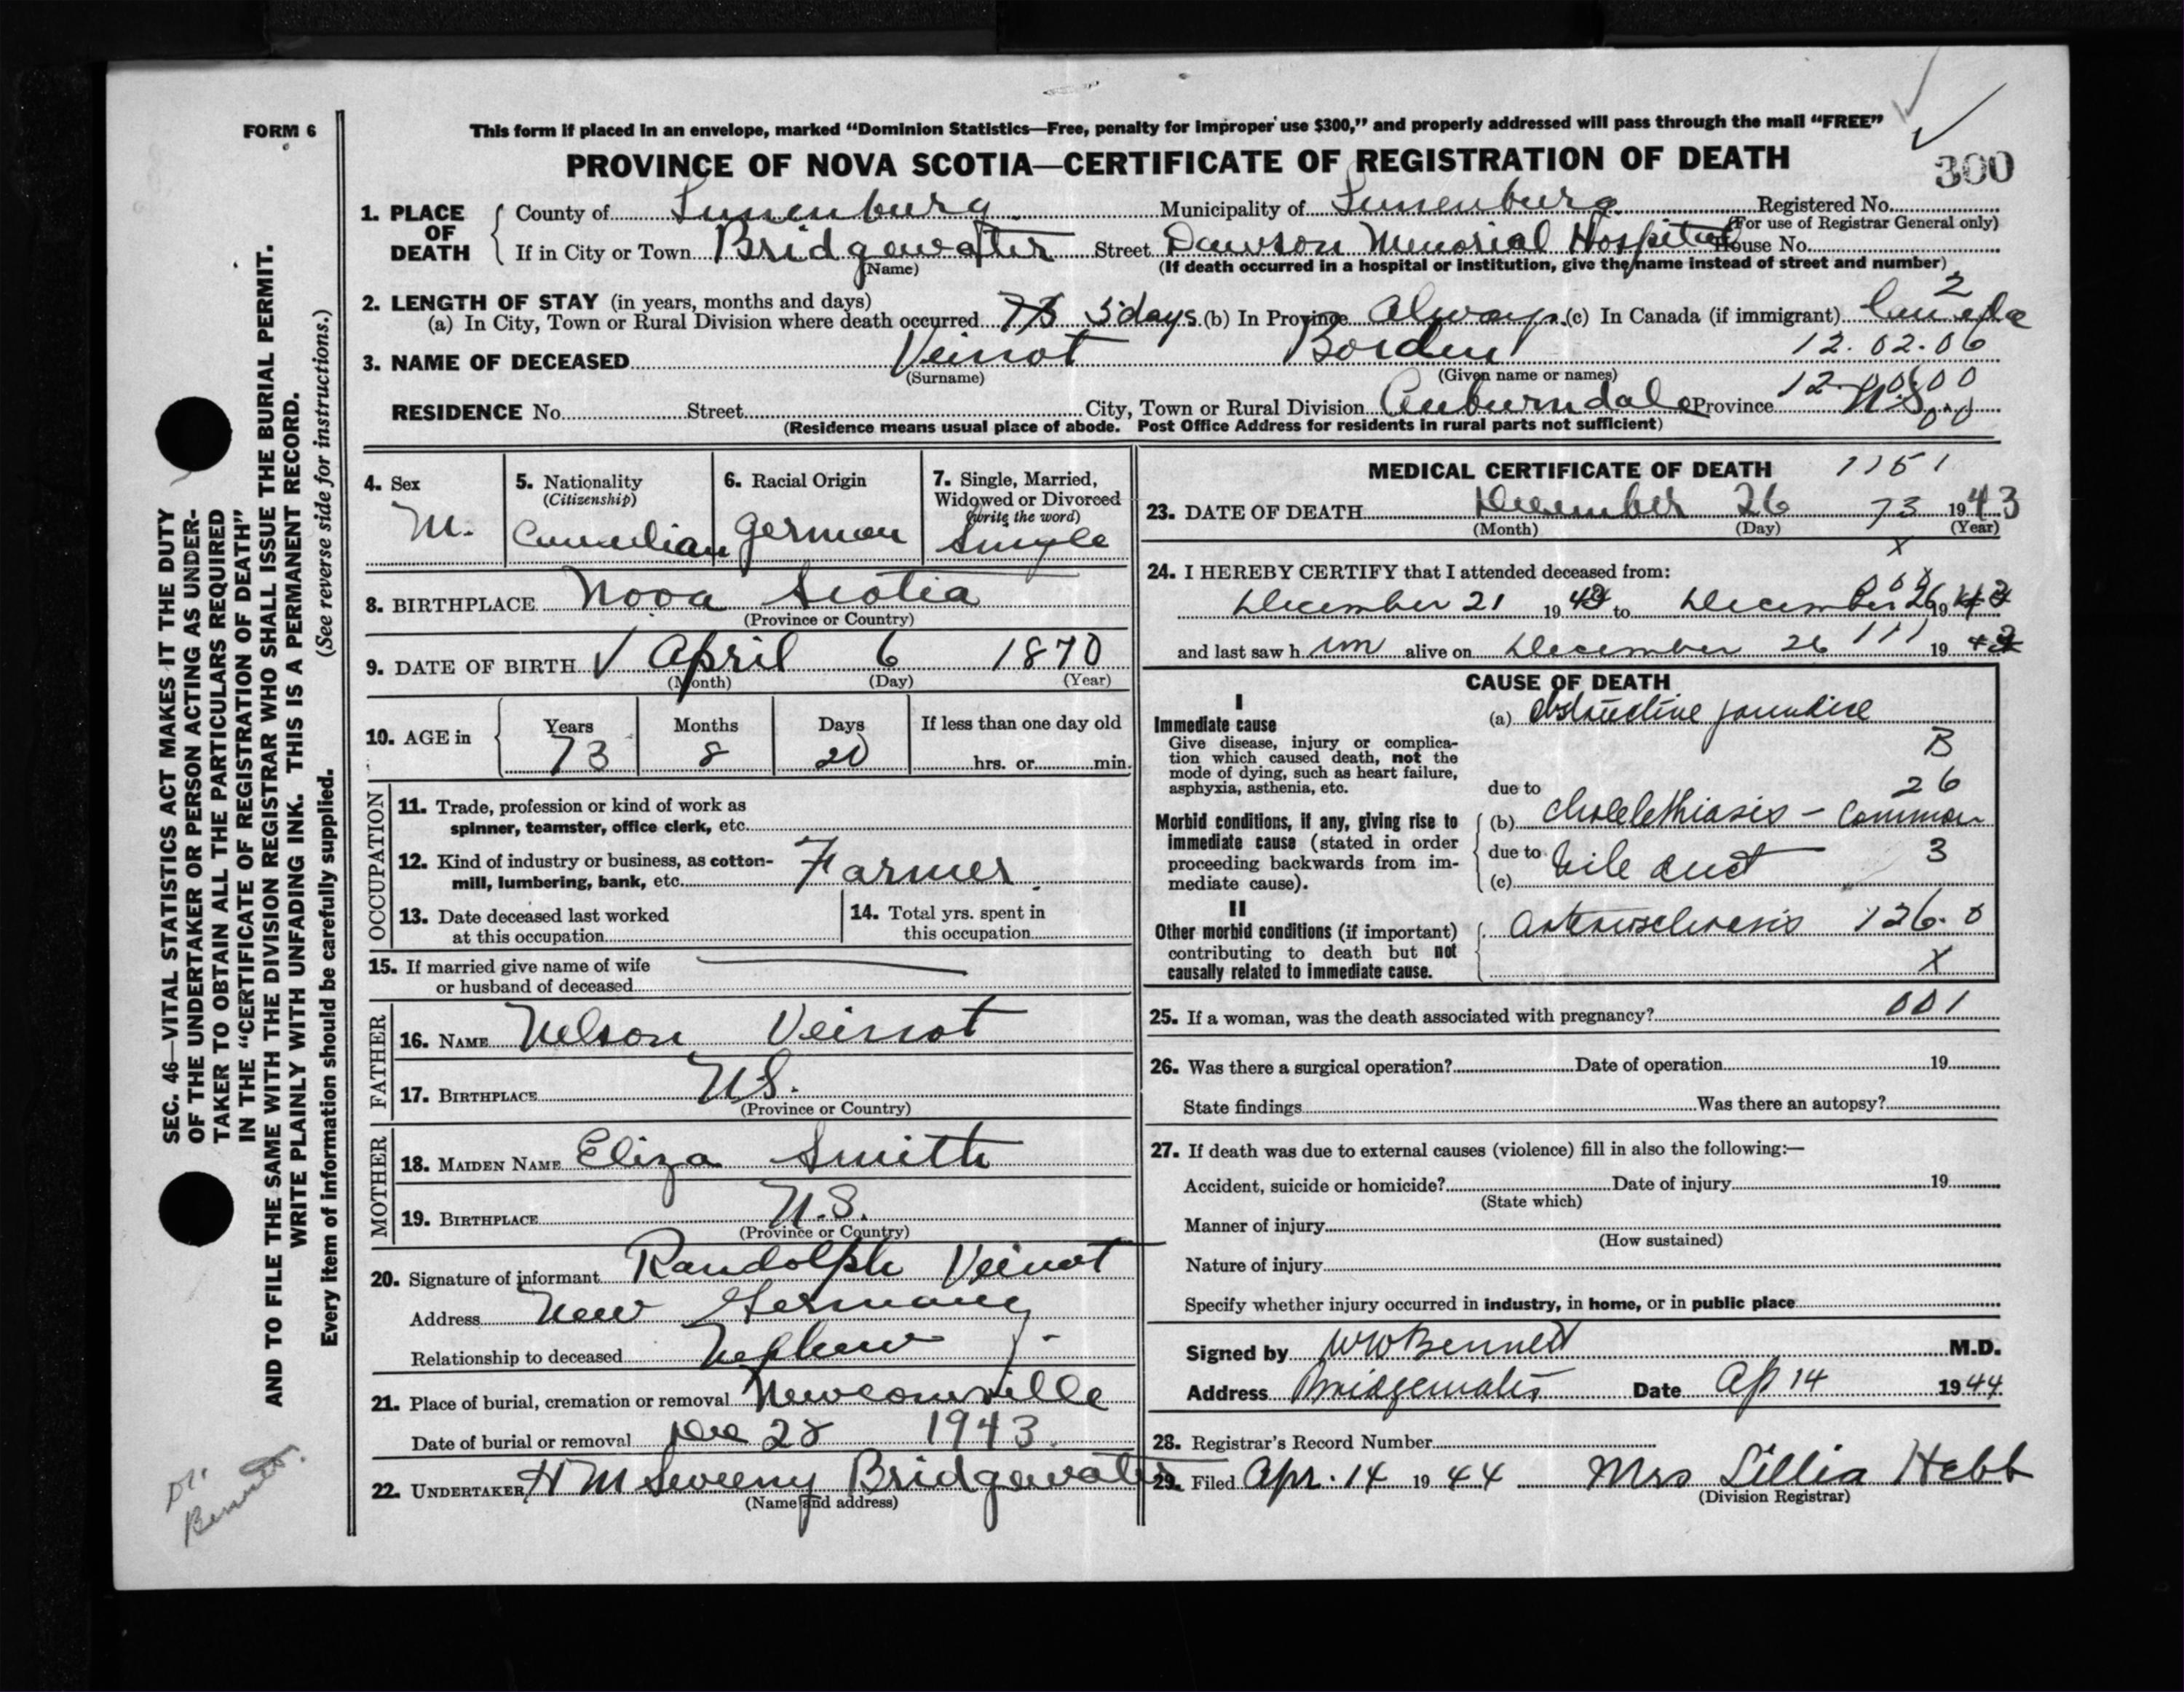 FORM 6
This form if placed in an envelope, marked "Dominion Statistics—Free, penalty for improper use $300," and properly addressed will pass through the mail "FREE"
PROVINCE OF NOVA SCOTIA—CERTIFICATE OF REGISTRATION OF DEATH
300
1. PLACE OF DEATH { County of Lunenburg Municipality of Lunenburg Registered No.
(For use of Registrar General only)
If in City or Town Bridgewater Street Dawson Memorial Hospital House No.
(Name) (If death occurred in a hospital or institution, give the name instead of street and number)
2. LENGTH OF STAY (in years, months and days) 2
(a) In City, Town or Rural Division where death occurred 73 5 days (b) In Province Always (c) In Canada (if immigrant) Canada
3. NAME OF DECEASED Veinot Borden 12.02.06
(Surname) (Given name or names)
12-00.00
RESIDENCE No. Street City, Town or Rural Division Auburndale Province N.S. 00
(Residence means usual place of abode. Post Office Address for residents in rural parts not sufficient)
4. Sex M.
5. Nationality (Citizenship) Canadian
6. Racial Origin German
7. Single, Married, Widowed or Divorced (write the word) Single
8. BIRTHPLACE Nova Scotia
(Province or Country)
9. DATE OF BIRTH April 6 1870
(Month) (Day) (Year)
10. AGE in Years 73 Months 8 Days 20 If less than one day old hrs. or min.
OCCUPATION
11. Trade, profession or kind of work as
spinner, teamster, office clerk, etc.
12. Kind of industry or business, as cotton-
mill, lumbering, bank, etc. Farmer
13. Date deceased last worked
at this occupation
14. Total yrs. spent in
this occupation
15. If married give name of wife
or husband of deceased
FATHER
16. NAME Nelson Veinot
17. BIRTHPLACE N.S.
(Province or Country)
MOTHER
18. MAIDEN NAME Eliza Smith
19. BIRTHPLACE N.S.
(Province or Country)
20. Signature of informant Randolph Veinot
Address New Germany
Relationship to deceased Nephew
21. Place of burial, cremation or removal Newcomville
Date of burial or removal Dec 28 1943
22. UNDERTAKER H M Sweeny Bridgewater
(Name and address)
MEDICAL CERTIFICATE OF DEATH 1151
23. DATE OF DEATH December 26 73 1943
(Month) (Day) (Year)
x
24. I HEREBY CERTIFY that I attended deceased from:
December 21 1943 to December 26 1943
and last saw him alive on December 26 111 1943
CAUSE OF DEATH
I
Immediate cause
Give disease, injury or complica-
tion which caused death, not the
mode of dying, such as heart failure,
asphyxia, asthenia, etc.
(a) obstructive jaundice
B
26
due to
Morbid conditions, if any, giving rise to
immediate cause (stated in order
proceeding backwards from im-
mediate cause).
(b) cholelethiasis – common
due to bile duct 3
(c)
II
Other morbid conditions (if important)
contributing to death but not
causally related to immediate cause.
arteriosclerosis 126.0
X
25. If a woman, was the death associated with pregnancy? 001
26. Was there a surgical operation? Date of operation 19
State findings Was there an autopsy?
27. If death was due to external causes (violence) fill in also the following:—
Accident, suicide or homicide? Date of injury 19
(State which)
Manner of injury
(How sustained)
Nature of injury
Specify whether injury occurred in industry, in home, or in public place
Signed by WW Bennett M.D.
Address Bridgewater Date Ap 14 1944
28. Registrar's Record Number
29. Filed Apr. 14 1944 Mrs Lillia Hebb
(Division Registrar)
SEC. 46—VITAL STATISTICS ACT MAKES IT THE DUTY
OF THE UNDERTAKER OR PERSON ACTING AS UNDER-
TAKER TO OBTAIN ALL THE PARTICULARS REQUIRED
IN THE "CERTIFICATE OF REGISTRATION OF DEATH"
AND TO FILE THE SAME WITH THE DIVISION REGISTRAR WHO SHALL ISSUE THE BURIAL PERMIT.
WRITE PLAINLY WITH UNFADING INK. THIS IS A PERMANENT RECORD.
Every item of information should be carefully supplied. (See reverse side for instructions.)
Dr.
Bennett.